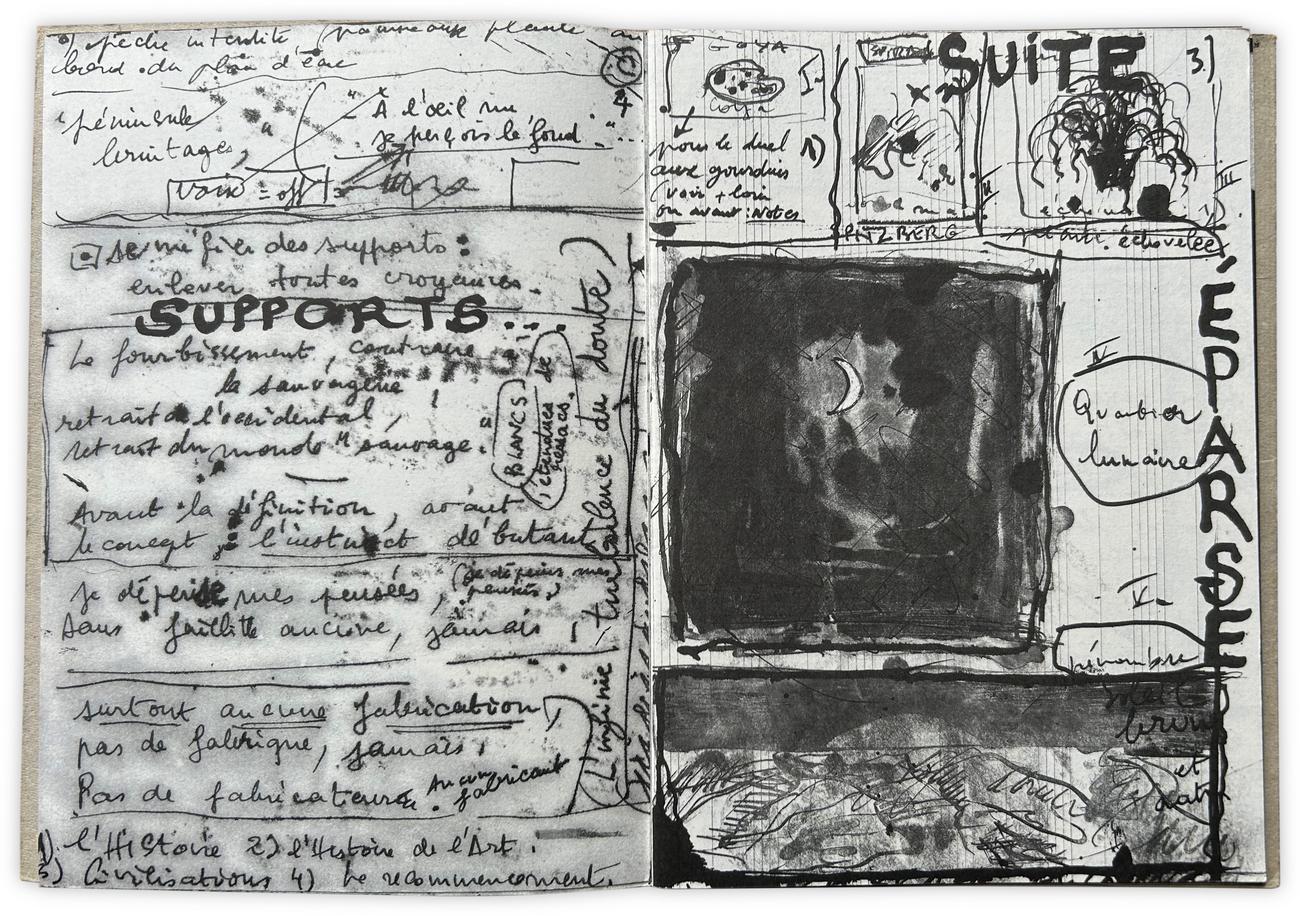 pêche interdite (panneaux plante au
bord du plan d'eau
"péninsule
hermitages"
À l'œil nu
je perçois le fond
Voix = off
4
se méfier des supports :
enlever toutes croyances.
SUPPORTS...
Le fourbissement, contraire
la sauvagerie
retrait de l'occidental,
retrait du monde "sauvage."
BLANCS
l'étendue de
Avant la définition, avant
le concept : l'instinct débutant
je dépeins mes pensées,
(je dépeins mes
pensées)
Sans faillite aucune, jamais
surtout aucune fabrication,
pas de fabrique, jamais.
Pas de fabricateurs.
Aucun
fabricant
(L'infinie turbulence du doute)
1) l'Histoire 2) l'Histoire de l'Art.
3) Civilisations 4) Le recommencement.
GOYA
Goya
I
pour le duel
aux gourdins
(voir + loin
ou avant : Notes
1)
SUITE
3.)
II
SPITZBERG
III
échevelée
ÉPARSE
IV
Quartier
lunaire
V
pénombre
et